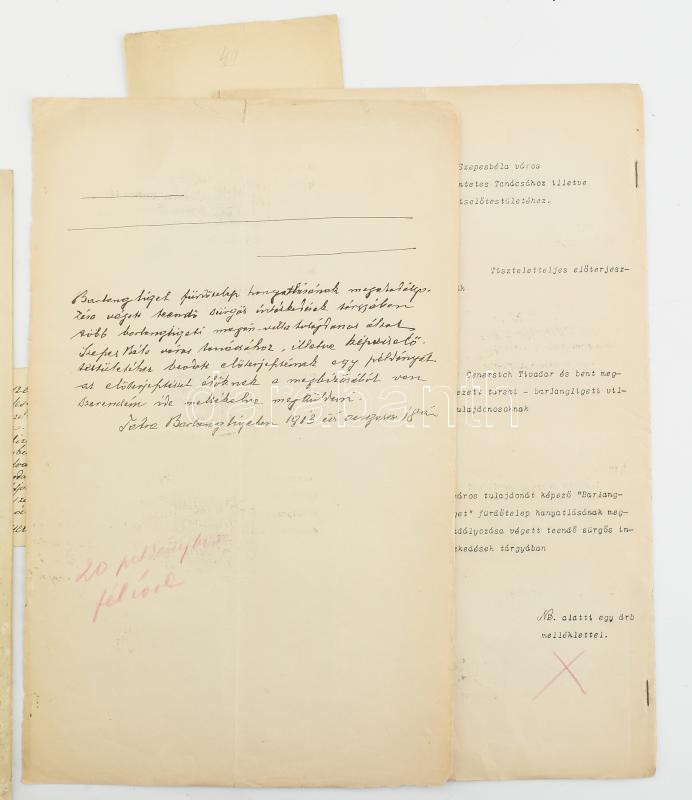 40
Barlangliget fürdőtelep hanyatlásának megakadályo-
zása végett teendő sürgős intézkedések tárgyában
több barlangligeti magán-villa tulajdonos által
Szepes Béla város tanácsához, illetve képviselő-
testületéhez beadott előterjesztésnek egy példányát
az előterjesztést
szerencsém ide mellékelve megküldeni.
Tátra Barlangligeten 1913 évi augusztus 18
20 példányban
Szepesbéla város
ntetes Tanácsához illetve
iselőtestületéhez.
Tiszteletteljes előterjesz-
Genersich Tivadar és bent meg-
ezett társai - barlangligeti vil-
tulajdonosoknak
város tulajdonát képező "Barlang-
get" fürdőtelep hanyatlásának meg-
adályozása végett teendő sürgős in-
zkedések tárgyában
NB. alatti egy drb
melléklettel.
darabanth